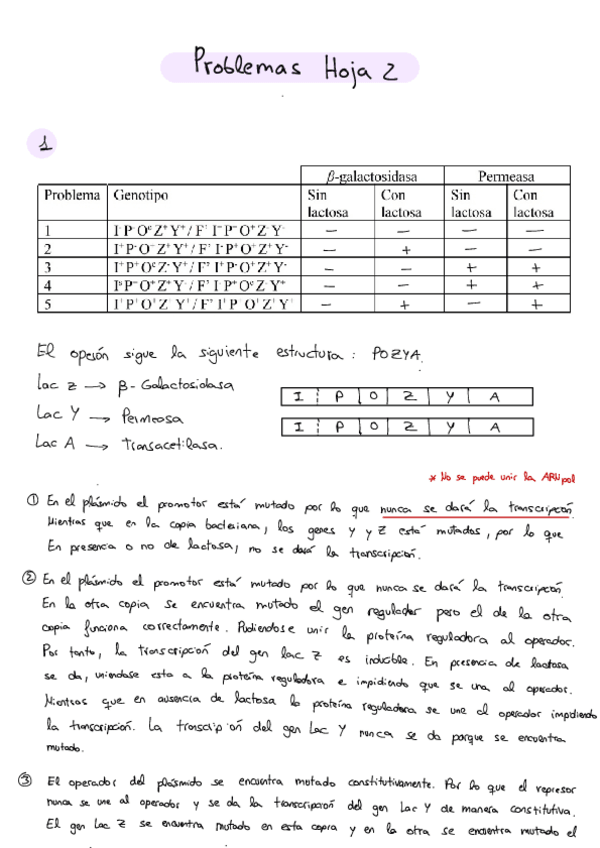 Problemas Hoja 2
1
β-galactosidasa Permeasa
Problema Genotipo Sin lactosa Con lactosa Sin lactosa Con lactosa
1 — — — —
2 — + — —
3 — — + +
4 — — + +
5 — + — +
El operón sigue la siguiente estructura: POZYA.
Lac Z → β-Galactosidasa
Lac Y → Permeasa
Lac A → Transacetilasa.
I P O Z Y A
I P O Z Y A
* No se puede unir la ARNpol
① En el plásmido el promotor está mutado por lo que nunca se dará la transcripción
Mientras que en la copia bacteriana, los genes y y Z está mutados, por lo que
En presencia o no de lactosa, no se dará la transcripción.
② En el plásmido el promotor está mutado por lo que nunca se dará la transcripción.
En la otra copia se encuentra mutado el gen regulador pero el de la otra
copia funciona correctamente. Pudiendose unir la proteína reguladora al operador.
Por tanto, la transcripción del gen lac Z es inducible. En presencia de lactosa
se da, uniendose esta a la proteína reguladora e impidiendo que se una al operador.
Mientras que en ausencia de lactosa la proteína reguladora se une al operador impidiendo
la transcripción. La transcripción del gen Lac Y nunca se da porque se encuentra
mutado.
③ El operador del plásmido se encuentra mutado constitutivamente. Por lo que el represor
nunca se une al operador y se da la transcripción del gen Lac Y de manera constitutiva.
El gen Lac Z se encuentra mutado en esta copia y en la otra se encuentra mutado el